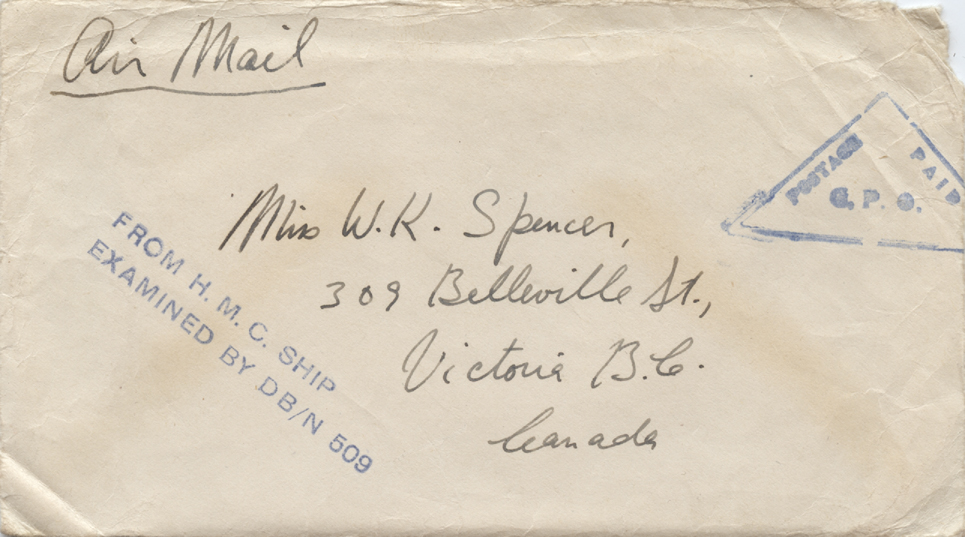 Air Mail
POSTAGE PAID
G. P. O.
Miss W. K. Spencer,
309 Belleville St.,
Victoria B.C.
Canada
FROM H. M. C. SHIP
EXAMINED BY DB/N 509